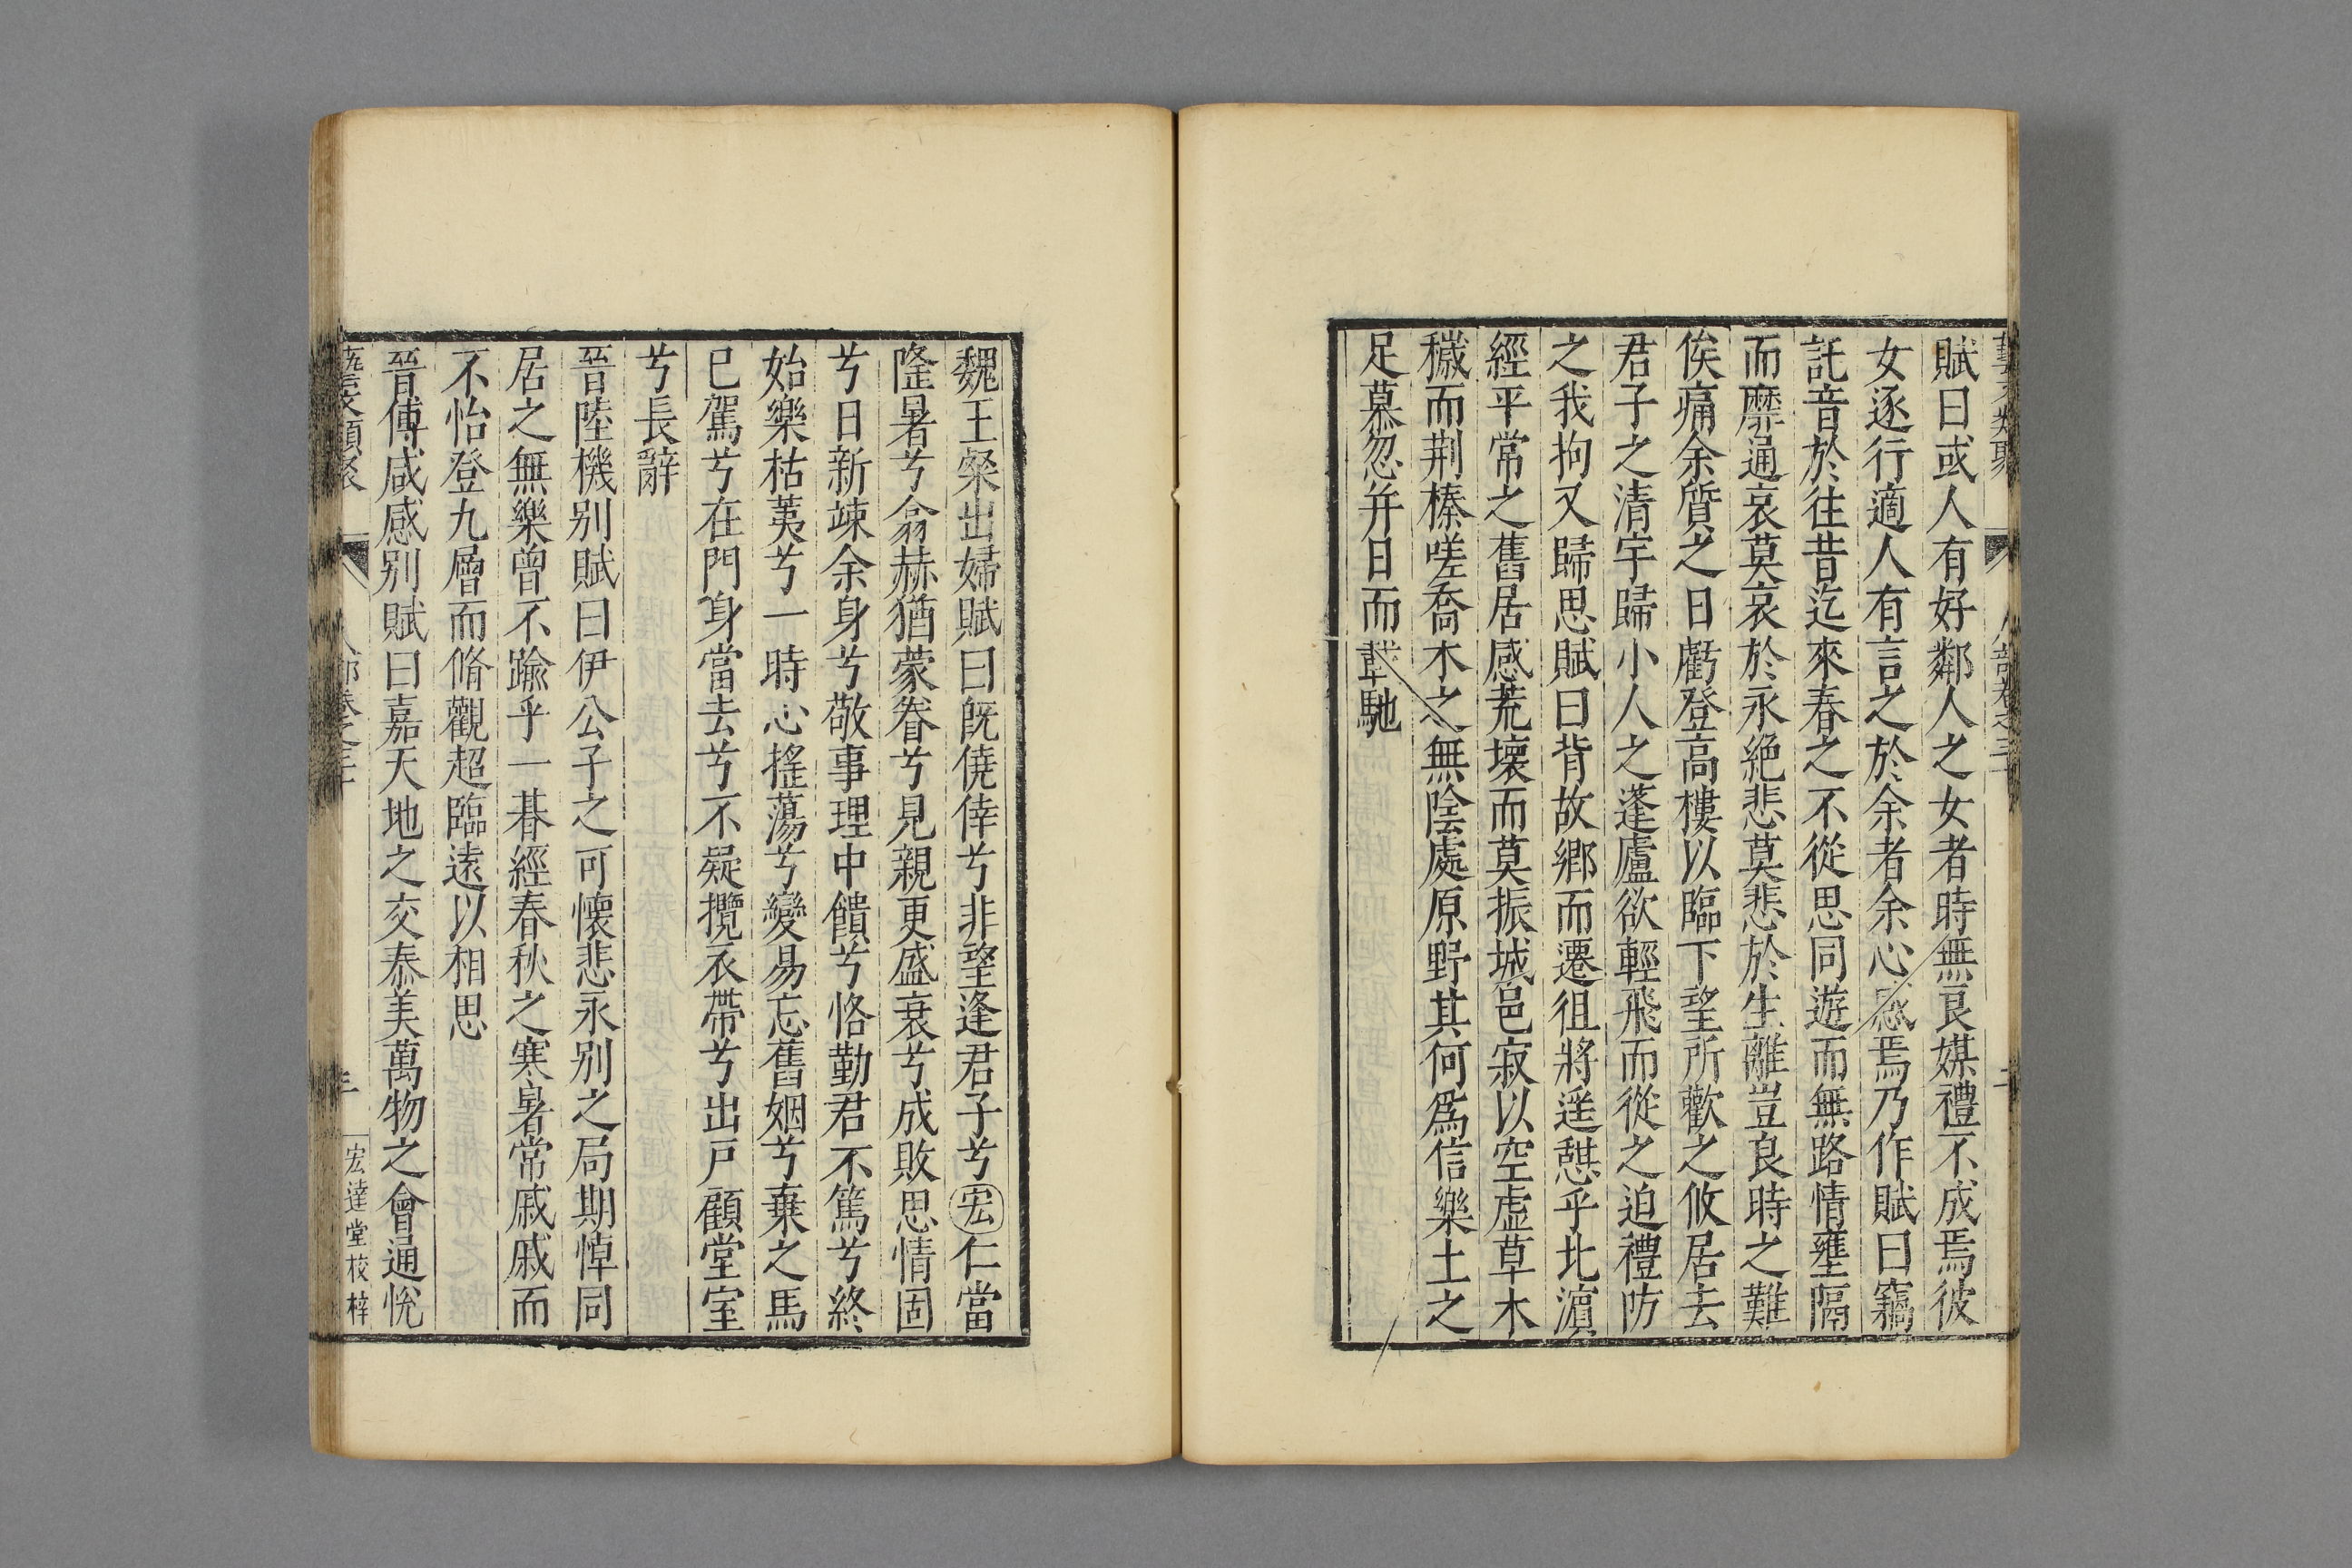 藝文類聚 人部卷之三十
賦曰或人有好鄰人之女者時無良媒禮不成焉彼
女逐行適人有言之於余者余心感焉乃作賦曰竊
託音於往昔迄來春之不從思同遊而無路情壅隔
而靡通哀莫哀於永絶悲莫悲於生離豈良時之難
俟痛余質之日虧登高樓以臨下望所歡之攸居去
君子之清宇歸小人之蓬廬欲輕飛而從之迫禮防
之我拘又歸思賦曰背故鄉而遷徂將遥憇乎北濵
經平常之舊居感荒壞而莫振城邑寂以空虛草木
穢而荆榛嗟喬木之無陰處原野其何爲信樂土之
足慕忽并日而載馳
魏王粲出婦賦曰旣僥倖兮非望逢君子兮宏仁當
隆暑兮翕赫猶蒙眷兮見親更盛衰兮成敗思情固
兮日新竦余身兮敬事理中饋兮恪勤君不篤兮終
始樂枯荑兮一時心搖蕩兮變易忘舊姻兮棄之馬
已駕兮在門身當去兮不疑攬衣帶兮出戸顧堂室
兮長辭
晉陸機别賦曰伊公子之可懷悲永别之局期悼同
居之無樂曾不踰乎一朞經春秋之寒暑常戚戚而
不怡登九層而脩觀超臨遠以相思
晉傅咸感别賦曰嘉天地之交泰美萬物之會通悅
藝文類聚 人部卷之三十 宏達堂校梓